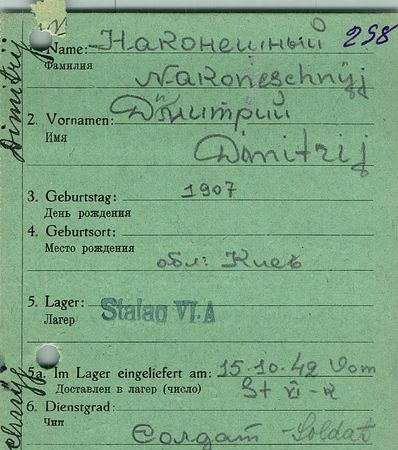 Dimitrij
Name: Наконешный 298
Фамилия
Nakoneschnyj
2. Vornamen: Дмитрий
Имя
Dimitrij
3. Geburtstag: 1907
День рождения
4. Geburtsort:
Место рождения
обл: Киев
5. Lager: Stalag VI.A
Лагер
5a. Im Lager eingeliefert am: 15.10.42 Vom
Доставлен в лагер (число) St VI-K
6. Dienstgrad:
Чин
Солдат Soldat